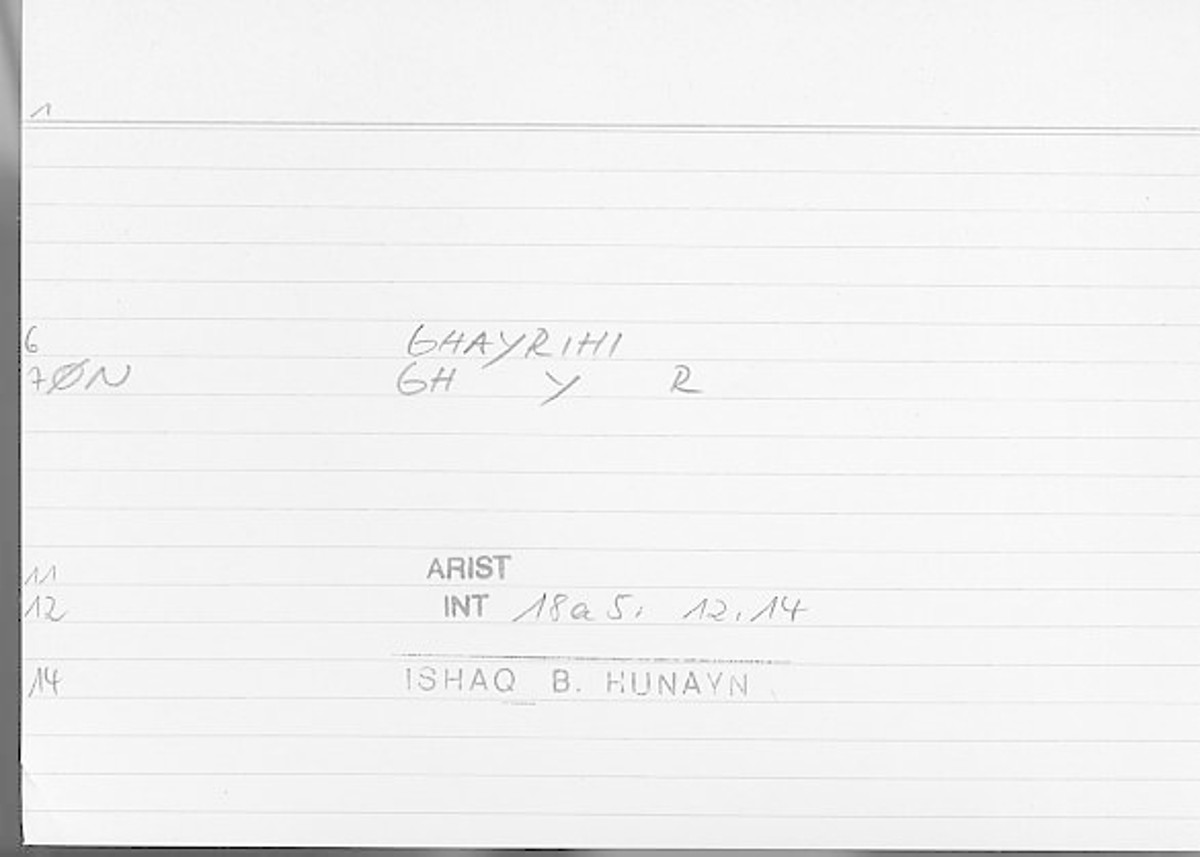 1
6 GHAYRIHI
7ØN GH Y R
11 ARIST
12 INT 18a5; 12.14
14 ISHAQ B. HUNAYN